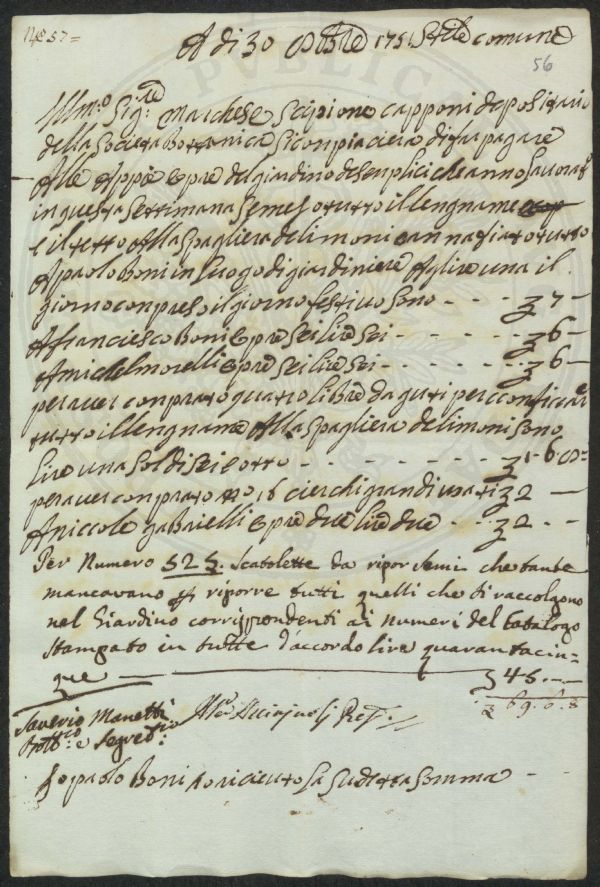 No 57=
A di 30 8bre 1751 Stile comune
56
Illmo Sigre Marchese Scipione Capponi depositario
della Società Bottanica si conpiaciera di far pagare
Alle Appiè opre del giardino de senplici che anno lavorat
in questa settimana semeso tutto il lengname
e il tetto Alla spagliera de limoni e annafiato tutto
A paolo Boni in luogo di giardiniere A glire una il
giorno conpreso il giorno festiuo sono - - - 7 -
A franciesco Boni opre sei lire sei - - - - 6 -
A michel morelli opre sei lire sei - - - - 6 -
per auer conprato quatro libre daguti per conficar
tutto il lengname Alla spagliera de limoni sono
lire una soldi sei e otto - - - - - 1-6 8=
per auer conprato no 16 cierchi grandi usati 2 -
A niccole gabrielli opre due lire due - - - 2 - -
Per Numero 525. Scatolette da ripor semi che tante
mancavano p riporre tutti quelli che si raccolgono
nel Giardino corrispondenti ai numeri del Catalogo
stampato in tutte d'accordo lire quarantacin-
que - 45.--
69.6.8
Saverio Manetti
Segretrio
Acciajuoli
Io paolo Boni o riceuto la sudetta somma -